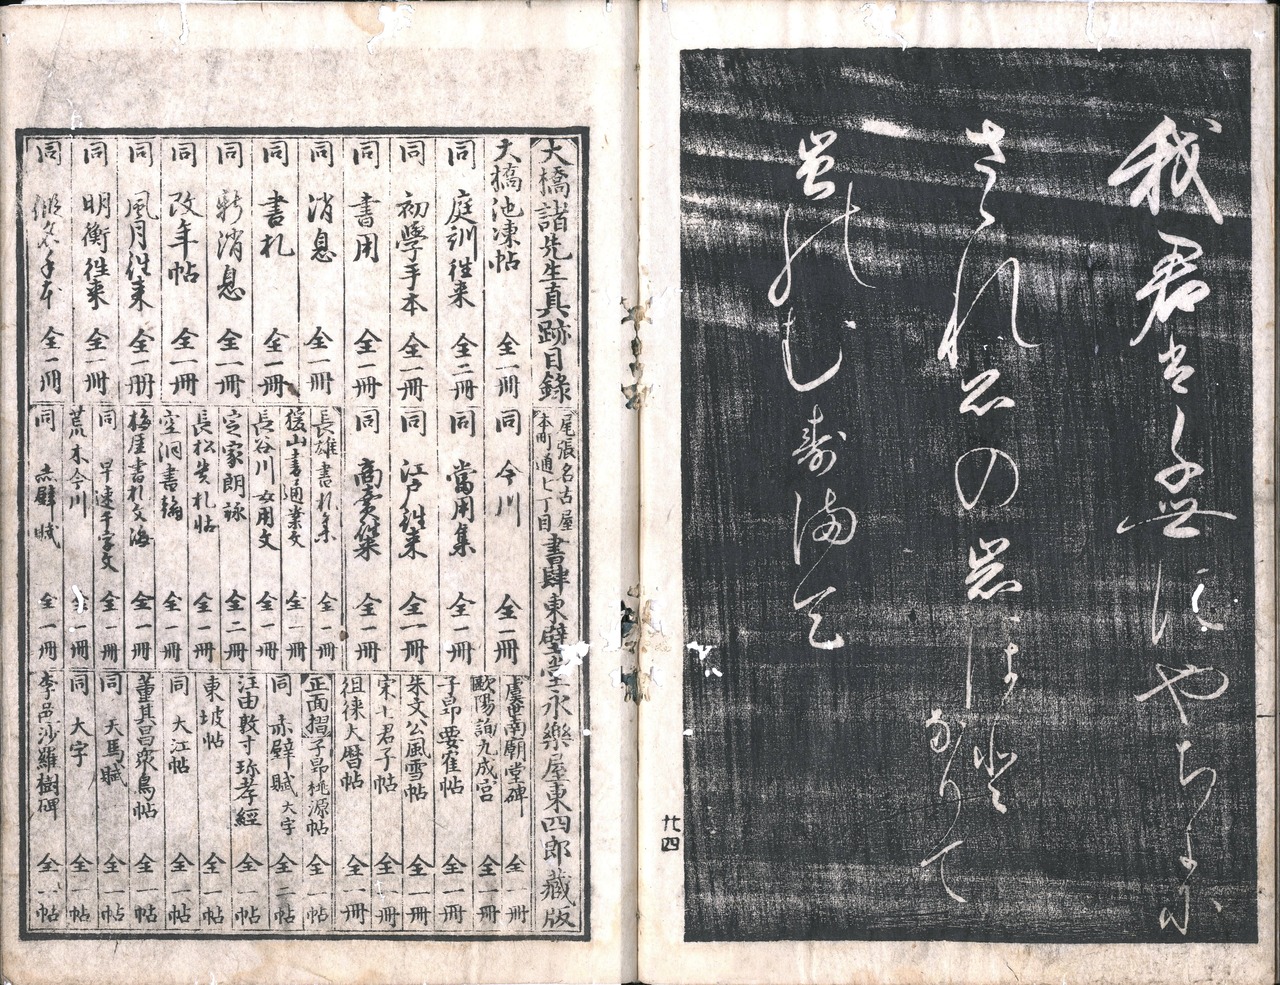 我君は千世にやちよに
さゝれ石の岩ほとなりて
苔のむすまて
廿四
大橋諸先生真跡目録
尾張名古屋
本町通七丁目
書肆東壁堂永樂屋東四郎藏版
大橋池凍帖 全一冊
同 庭訓徃来 全二冊
同 初學手本 全一冊
同 書用 全一冊
同 消息 全一冊
同 書札 全一冊
同 新消息 全一冊
同 改年帖 全一冊
同 風月徃来 全一冊
同 明衡徃来 全一冊
同 全一冊
同 今川 全一冊
同 當用集 全一冊
同 江戸徃来 全一冊
同 商賣徃来 全一冊
長雄書札集 全一冊
全一冊
長谷川女用文 全一冊
定家朗詠 全二冊
長松貴札帖 全一冊
空洞書翰 全一冊
梅崖書札文海 全一冊
同 早速千字文 全一冊
荒木今川 全一冊
同 赤壁賦 全一冊
虞世南廟堂碑 全一冊
歐陽詢九成宮 全一冊
子昂要雀帖 全一冊
朱文公風雪帖 全一冊
宋七君子帖 全一冊
徂徠大暦帖 全一冊
正面摺子昂桃源帖 全一帖
同 赤壁賦大字 全二帖
汪由敦寸珎孝經 全一帖
東坡帖 全一帖
同 大江帖 全一帖
董其昌衆鳥帖 全一帖
同 天馬賦 全一帖
同 大字 全一帖
李邕沙羅樹碑 全一帖